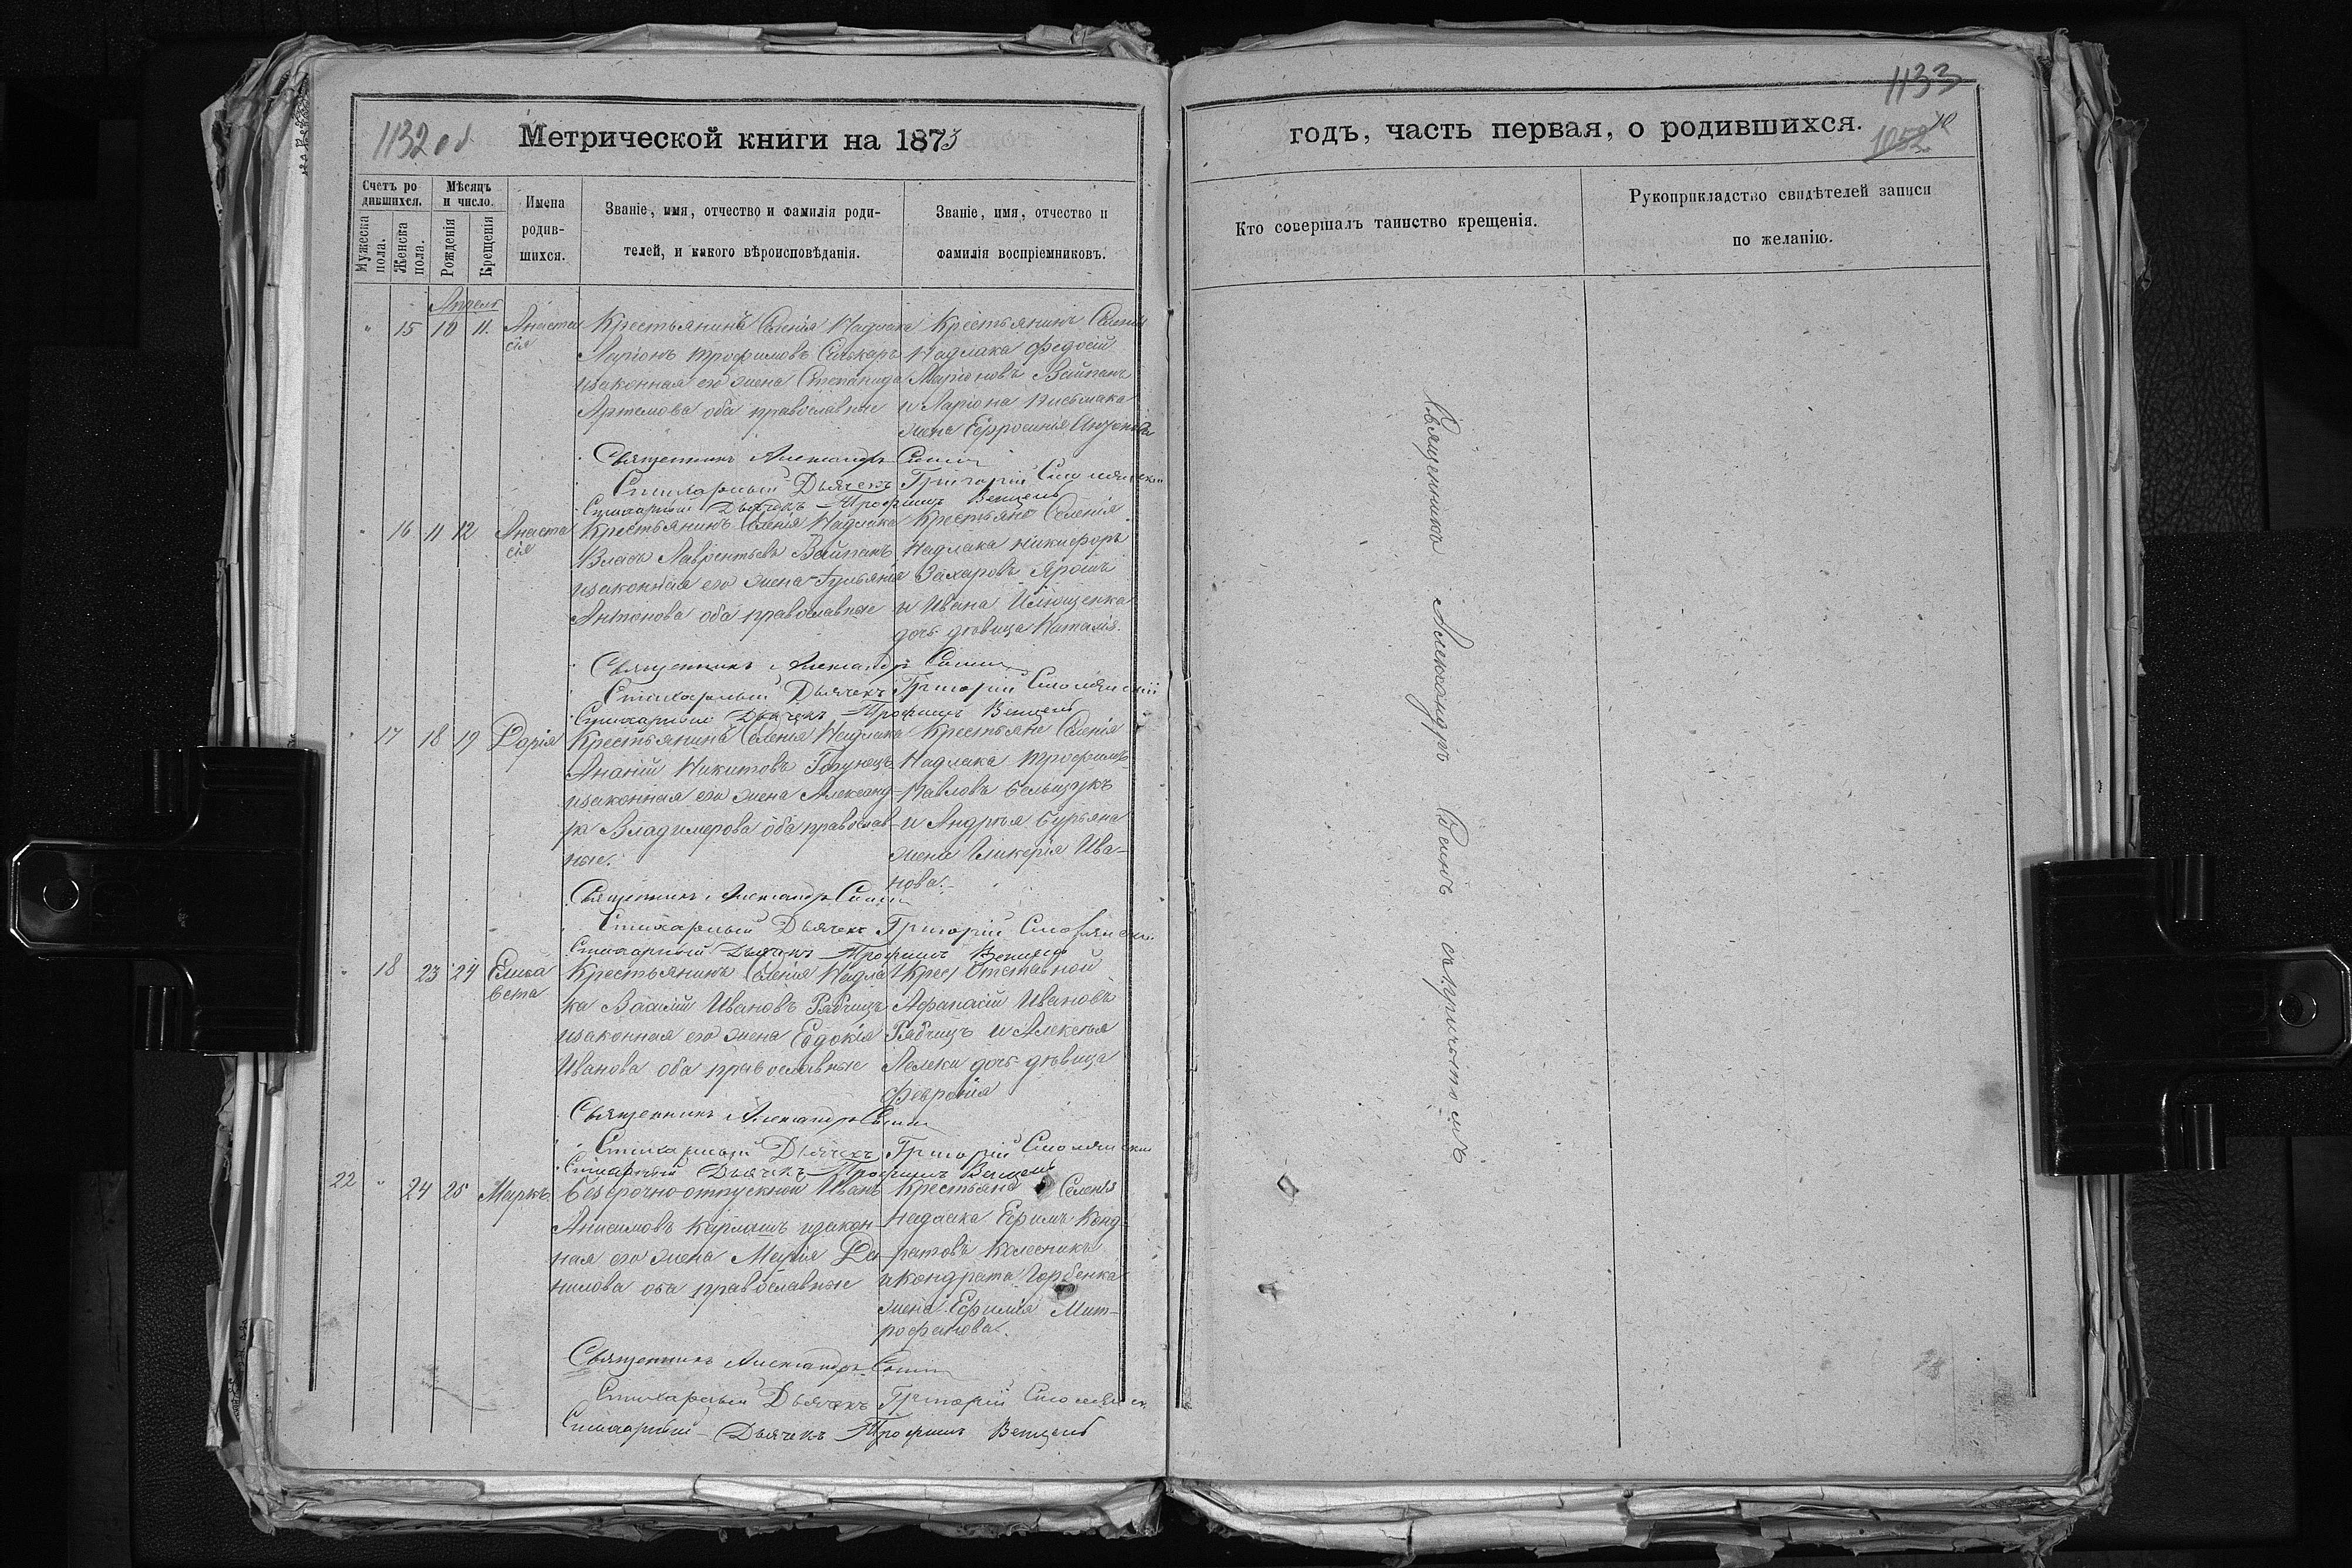 1132 об
Метрической книги на 1873
Счетъ ро
дившихся.
Мужеска пола.
Женска пола.
Мѣсяцъ
и число.
Рожденія
Крещенія
Имена
родив-
шихся.
Званіе, имя, отчество и фамилія роди-
телей, и какого вѣроисповѣданія.
Званіе, имя, отчество и
фамилія воспріемниковъ.
Апрель
" 15 10 11. Анаста
сія
Крестьянинъ Селенія Надлака
Ларіонъ Трофимовъ
изаконная его жена Степанида
Артемова оба православные
Крестьянинъ Селенія
Надлака Федосій
Ларіоновъ Вайпанъ
и Ларіона Письмака
жена Ефросинія
Священникъ Александръ
Стихарный Дьячекъ Григорій
Стихарный Дьячекъ Трофимъ
" 16 11 12 Анаста
сія
Крестьянинъ Селенія Надлака
Власъ Лаврентьевъ Вайпанъ
изаконная его жена Гульянія
Антонова оба православные
Крестьяне Селенія
Надлака Никифоръ
Захаровъ Ярошъ
и Ивана Илющенка
дочь дѣвица Наталія.
Священникъ Александръ
Стихарный Дьячекъ Григорій
Стихарный Дьячекъ Трофимъ
" 17 18 19 Дарія
Крестьянинъ Селенія Надлака
Ананій Никитовъ
изаконная его жена Александ-
ра Владимерова оба православ-
ные.
Крестьяне Селенія
Надлака Трофимъ
Павловъ
и Андрѣя Бурьяна
жена Гликерія Ива-
нова.
Священникъ Александръ
Стихарный Дьячекъ Григорій
Стихарный Дьячекъ Трофимъ
" 18 23 24 Елиса
вета
Крестьянинъ Селенія Надла
ка Василій Ивановъ Рябчицъ
изаконная его жена Евдокія
Иванова оба православные
Отставной
Афанасій Ивановъ
Рябчицъ и Алексѣя
Лелеки дочь дѣвица
Февронія
Священникъ Александръ
Стихарный Дьячекъ Григорій
Стихарный Дьячекъ Трофимъ
22 " 24 25 Маркъ.
Безсрочно-отпускной Иванъ
Анисимовъ Карлашъ изакон-
ная его жена Марія Да-
нилова оба православные
Крестьяне Селенія
Надлака Ефимъ Конд-
ратовъ Колесникъ
и Кондрата Горбенка
жена Ефимія Мит-
рофанова.
Священникъ Александръ
Стихарный Дьячекъ Григорій
Стихарный Дьячекъ Трофимъ
1133
годъ, часть первая, о родившихся.
1052
10
Кто совершалъ таинство крещенія.
Рукоприкладство свидѣтелей записи
по желанію.
Священникъ Александръ съ причтомъ